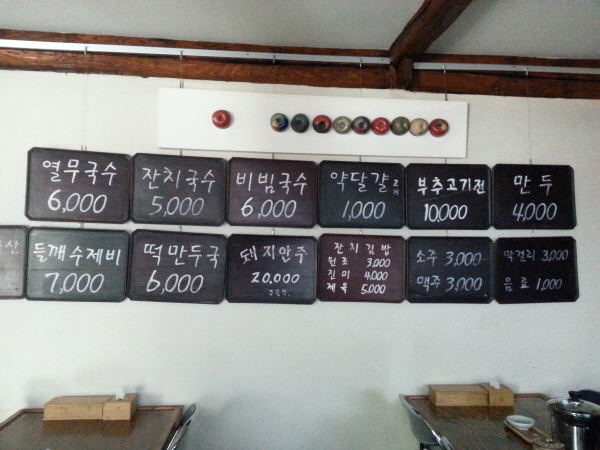 열무국수
6,000
잔치국수
5,000
비빔국수
6,000
약달걀 2개
1,000
부추고기전
10,000
만두
4,000
들깨수제비
7,000
떡만두국
6,000
돼지안주
20,000
잔치김밥
원조 3,000
진미 4,000
제육 5,000
소주 3,000
맥주 3,000
막걸리 3,000
음료 1,000